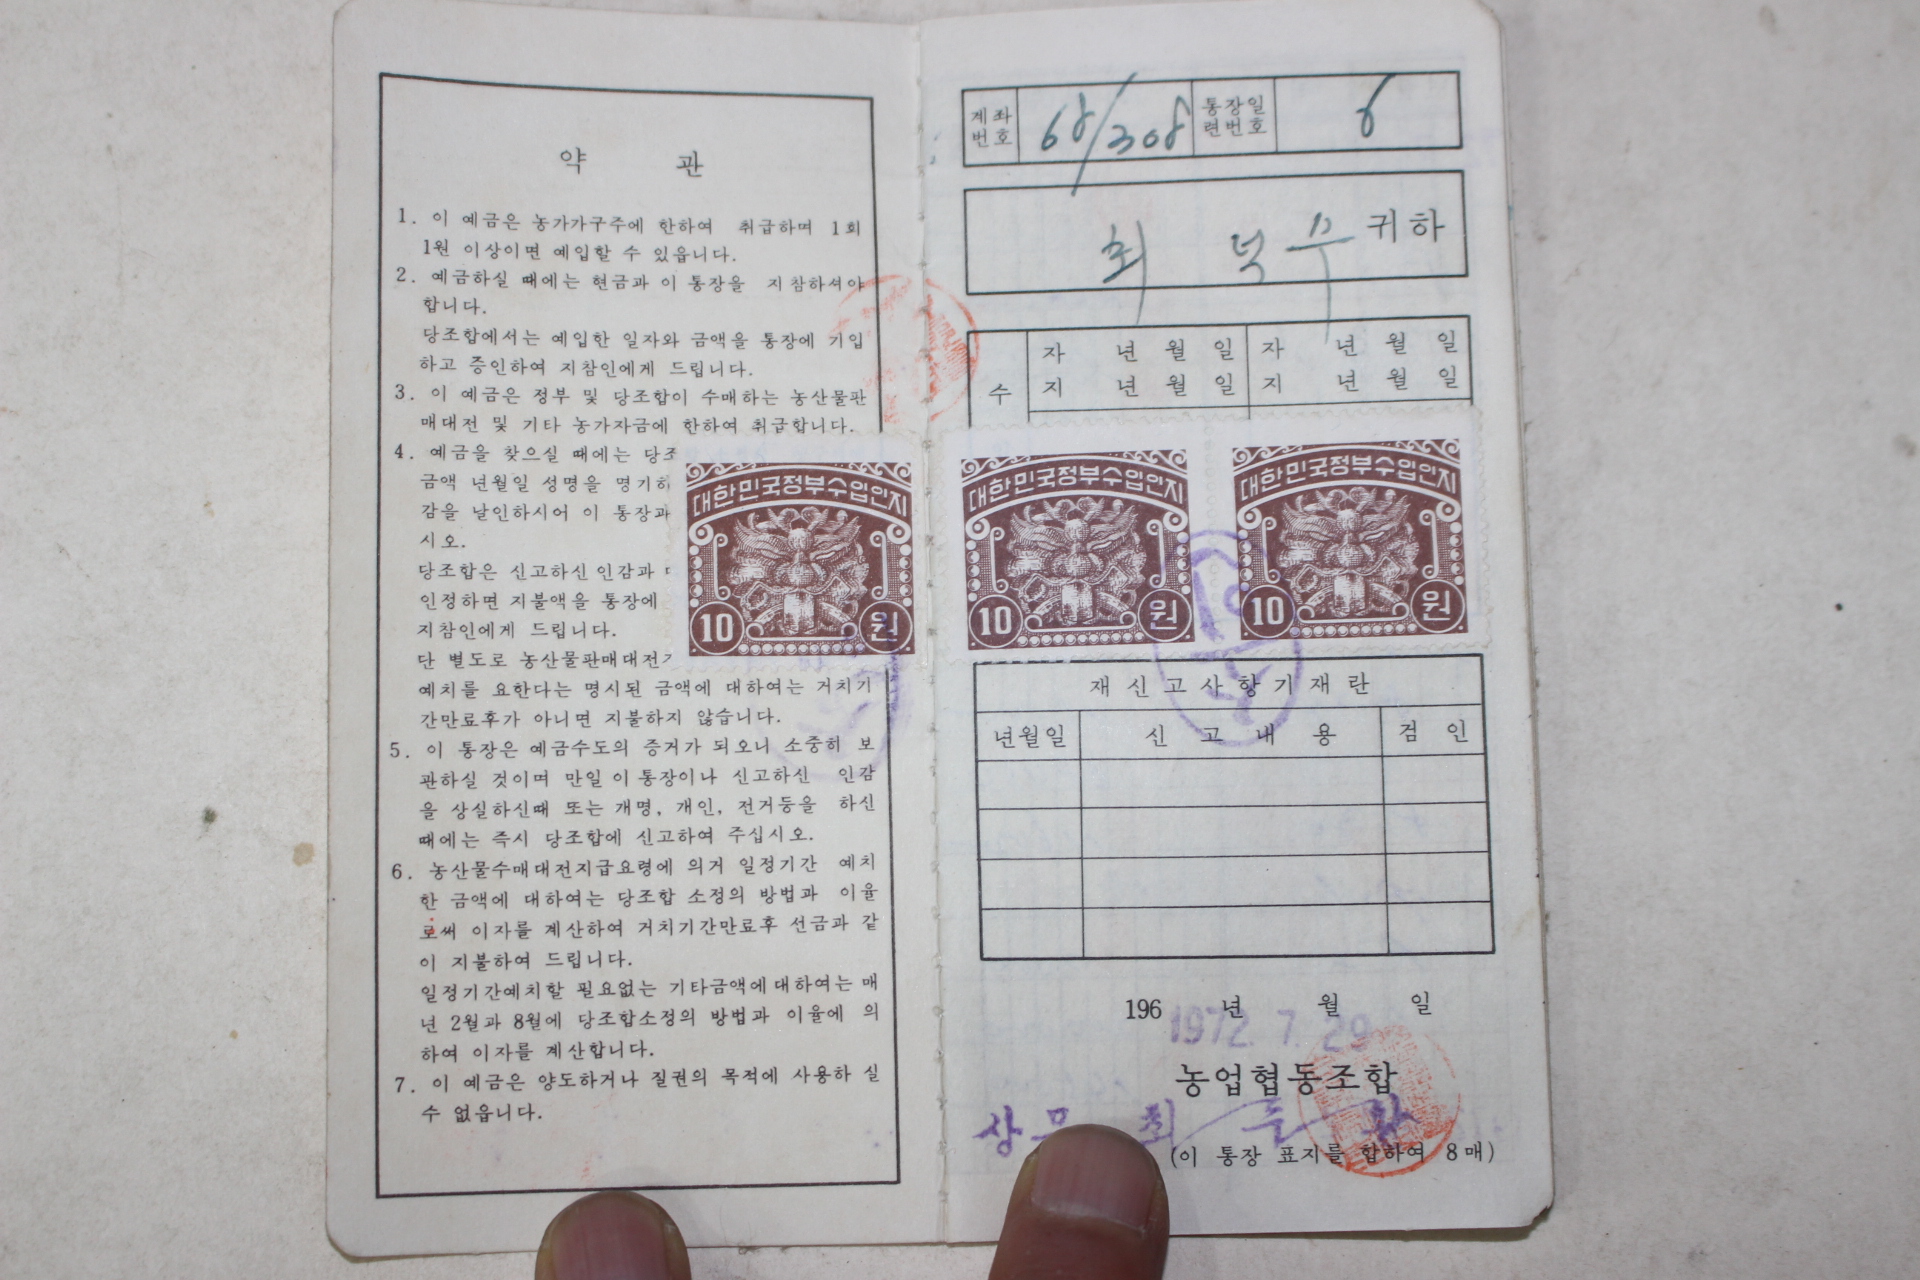 약 관
1. 이 예금은 농가가구주에 한하여 취급하며 1회
1원 이상이면 예입할 수 있읍니다.
2. 예금하실 때에는 현금과 이 통장을 지참하셔야
합니다.
당조합에서는 예입한 일자와 금액을 통장에 기입
하고 증인하여 지참인에게 드립니다.
3. 이 예금은 정부 및 당조합이 수매하는 농산물판
매대전 및 기타 농가자금에 한하여 취급합니다.
4. 예금을 찾으실 때에는 당조
금액 년월일 성명을 명기하
감을 날인하시어 이 통장과
시오.
당조합은 신고하신 인감과
인정하면 지불액을 통장에
지참인에게 드립니다.
단 별도로 농산물판매대전
예치를 요한다는 명시된 금액에 대하여는 거치기
간만료후가 아니면 지불하지 않습니다.
5. 이 통장은 예금수도의 증거가 되오니 소중히 보
관하실 것이며 만일 이 통장이나 신고하신 인감
을 상실하신때 또는 개명, 개인, 전거등을 하신
때에는 즉시 당조합에 신고하여 주십시오.
6. 농산물수매대전지급요령에 의거 일정기간 예치
한 금액에 대하여는 당조합 소정의 방법과 이율
로써 이자를 계산하여 거치기간만료후 선금과 같
이 지불하여 드립니다.
일정기간예치할 필요없는 기타금액에대하여는 매
년 2월과 8월에 당조합소정의 방법과 이율에 의
하여 이자를 계산합니다.
7. 이 예금은 양도하거나 질권의 목적에 사용하 실
수 없읍니다.
대한민국정부수입인지
10 원
계좌번호 68/308 통장일련번호 8
최 덕 수 귀하
수
자 년 월 일 자 년 월 일
지 년 월 일 지 년 월 일
대한민국정부수입인지 대한민국정부수입인지
10 원 10 원
재신고사항기재란
년월일 신 고 내 용 검 인
196 년 월 일
1972. 7. 29
농업협동조합
상 무 최
(이 통장 표지를 합하여 8매)